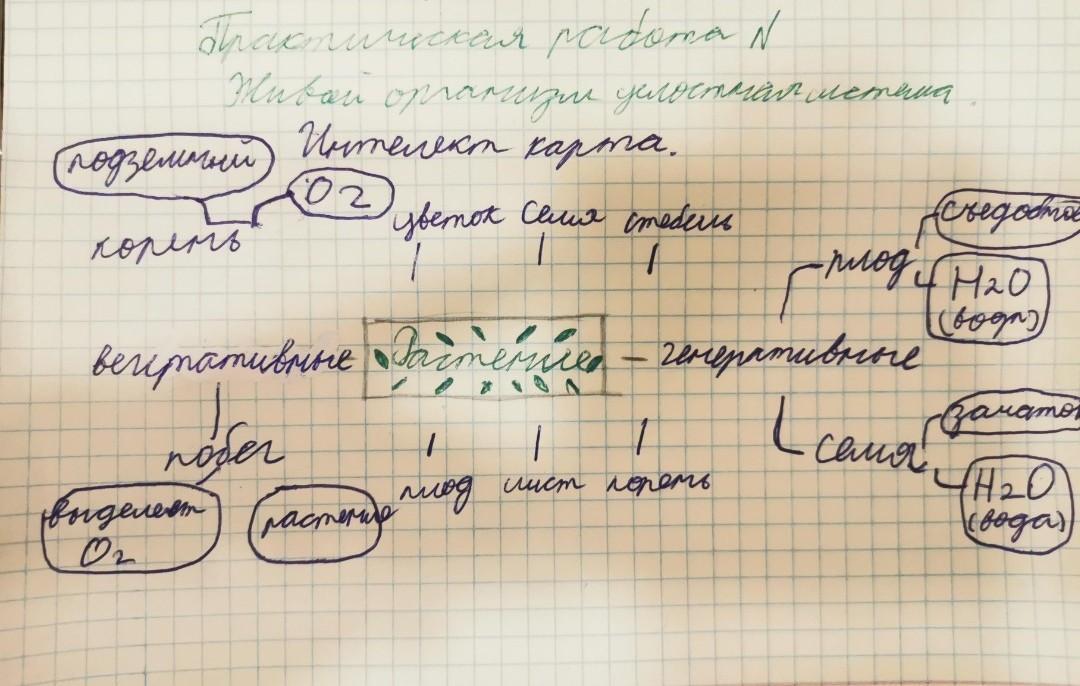 Практическая работа N
Живой организм целостная система.
Интелект карта.
подземный
O2
корень
цветок семя стебель
плод
съедобное
H2O
(вода)
вегетативные
Растение
генеративные
побег
выделяет
O2
растение
плод лист корень
семя
зачаток
H2O
(вода)